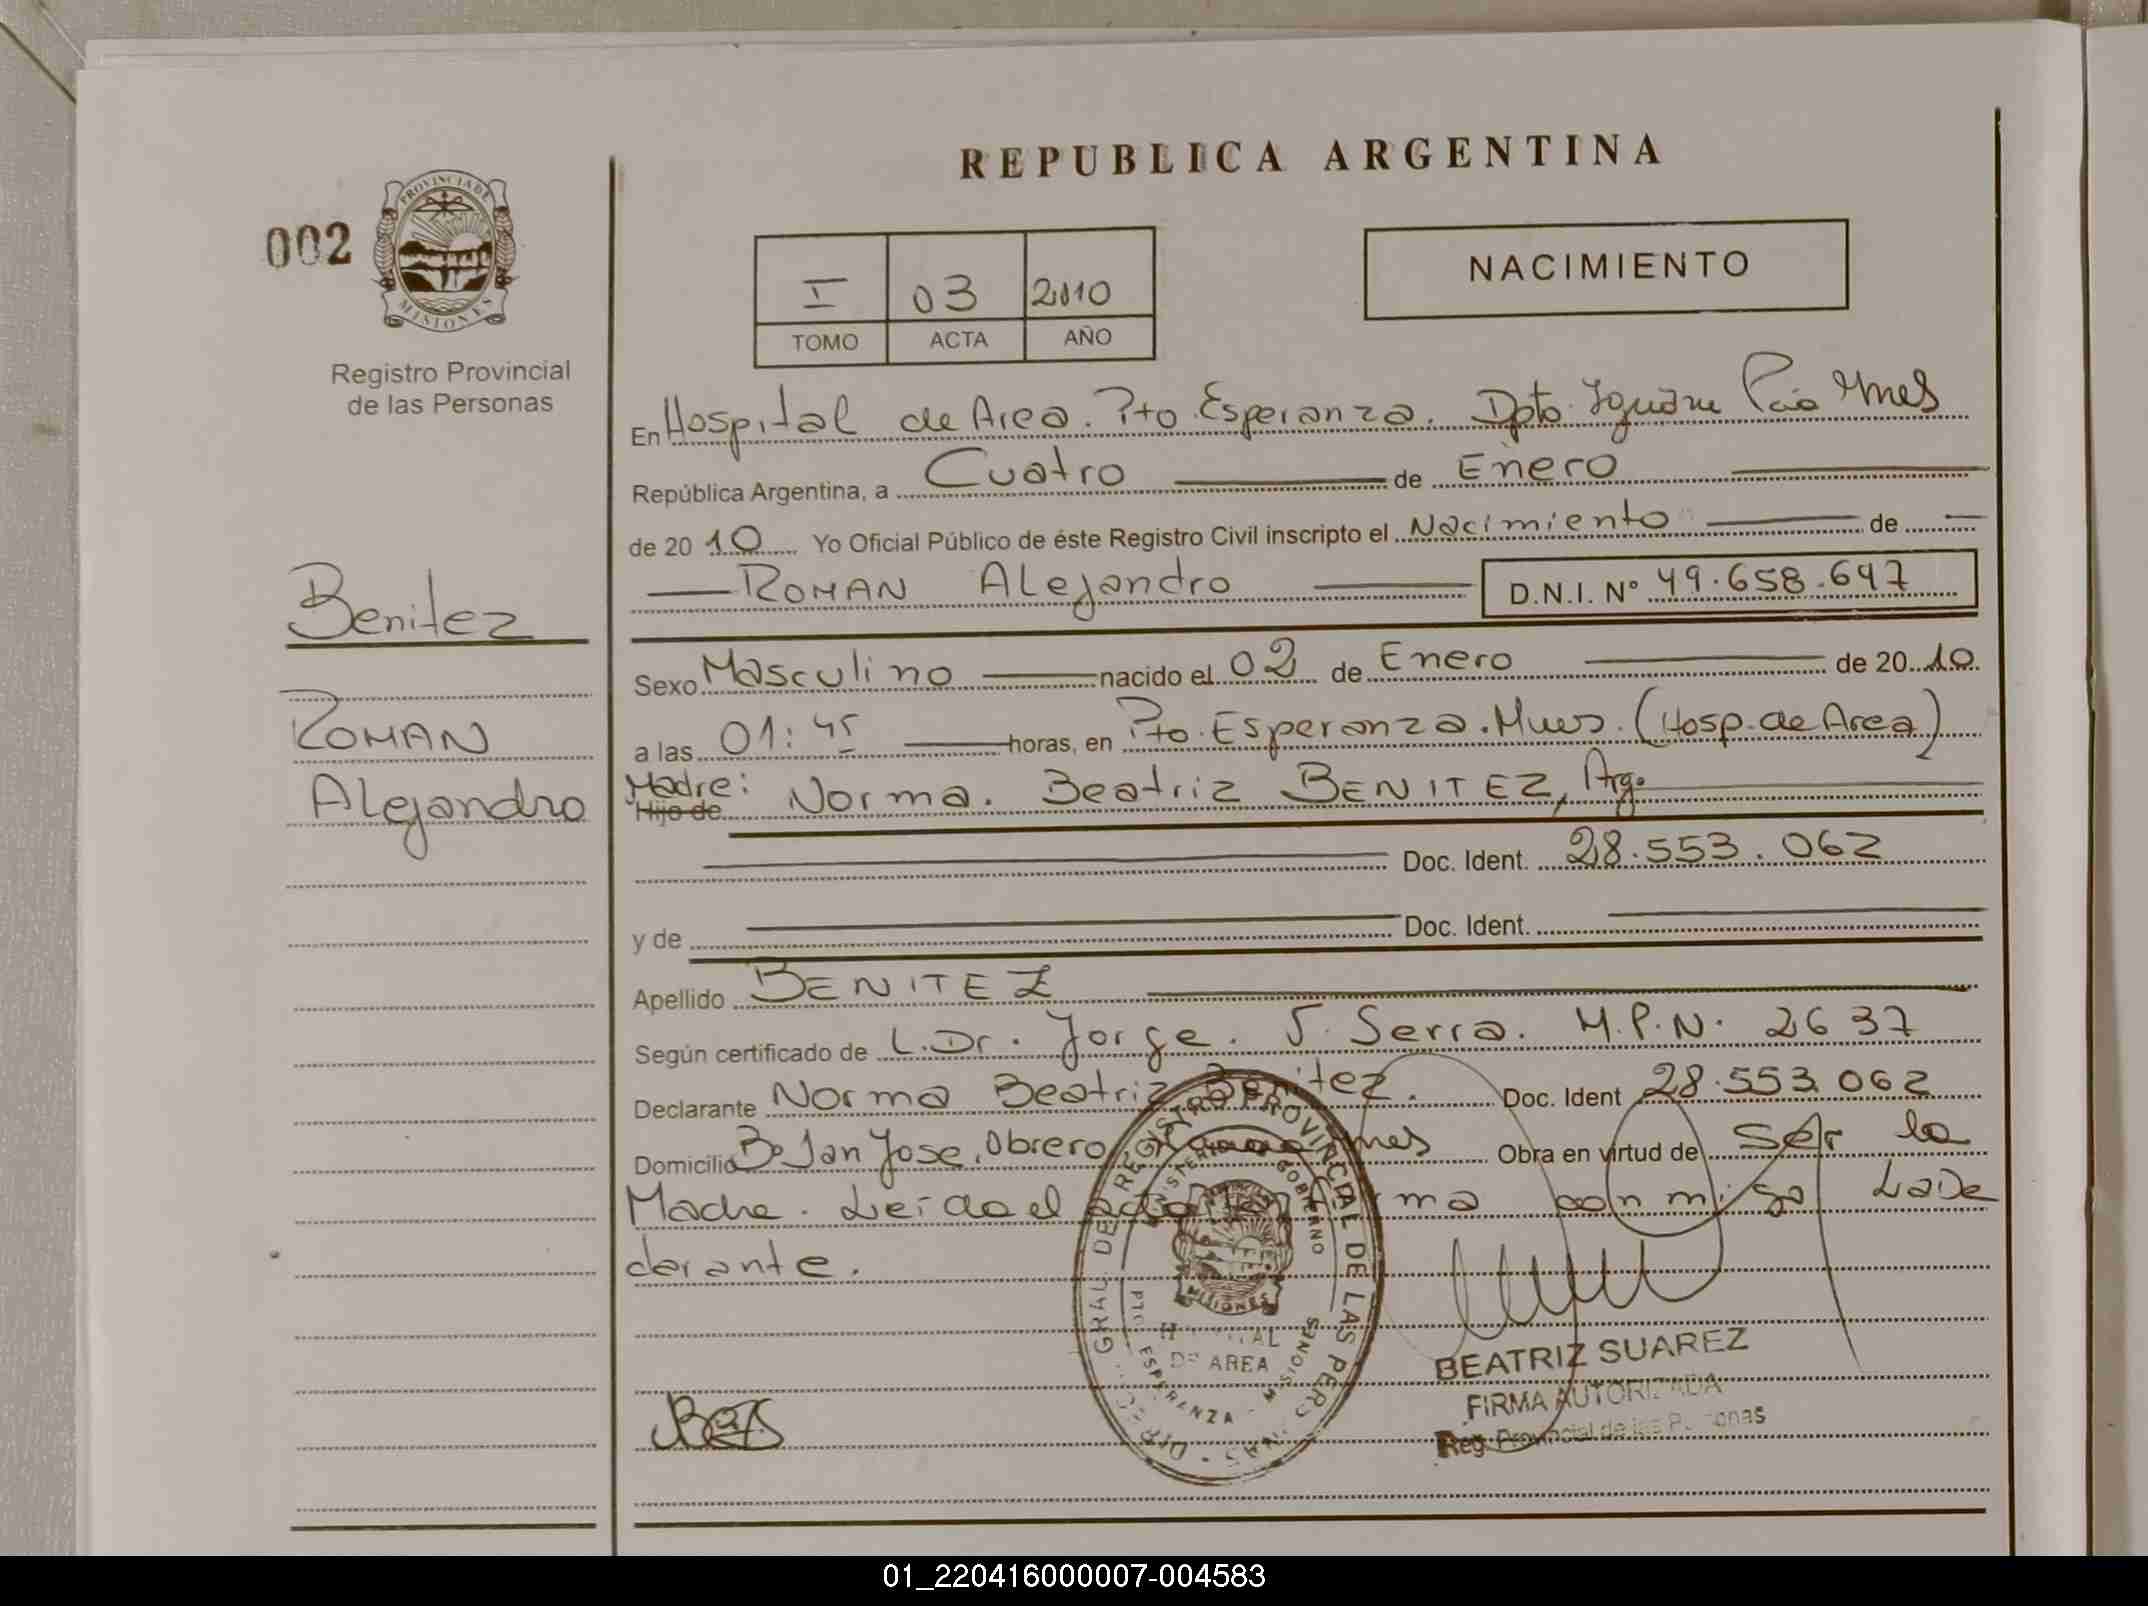 REPUBLICA ARGENTINA
002
PROVINCIA DE
MISIONES
Registro Provincial
de las Personas
NACIMIENTO
I 03 2010
TOMO ACTA AÑO
En Hospital de Area. Pto. Esperanza. Dpto. Iguazu Pcia Mnes
República Argentina, a Cuatro de Enero
de 20 10 Yo Oficial Público de éste Registro Civil inscripto el Nacimiento de
ROMAN Alejandro D.N.I. Nº 49.658.647
Benitez
ROMAN
Alejandro
Sexo Masculino nacido el 02 de Enero de 20 10
a las 01:45 horas, en Pto. Esperanza. Mnes. (Hosp. de Area)
Madre: Norma. Beatriz BENITEZ, Arg.
Hijo de
Doc. Ident. 28.553.062
y de Doc. Ident.
Apellido BENITEZ
Según certificado de L. Dr. Jorge. J. Serra. M.P.N. 2637
Declarante Norma Beatriz Benitez. Doc. Ident 28.553.062
Domicilio Bº San Jose. Obrero Mnes Obra en virtud de Ser la
Madre. Leída el acta firma conmigo La De
clarante.
DIRECC. GRAL. DE REGISTRO PROVINCIAL DE LAS PERSONAS
MINISTERIO DE GOBIERNO
MISIONES
HOSPITAL
DE AREA
PTO. ESPERANZA - MISIONES
BEATRIZ SUAREZ
FIRMA AUTORIZADA
Reg. Provincial de las Personas
01_220416000007-004583